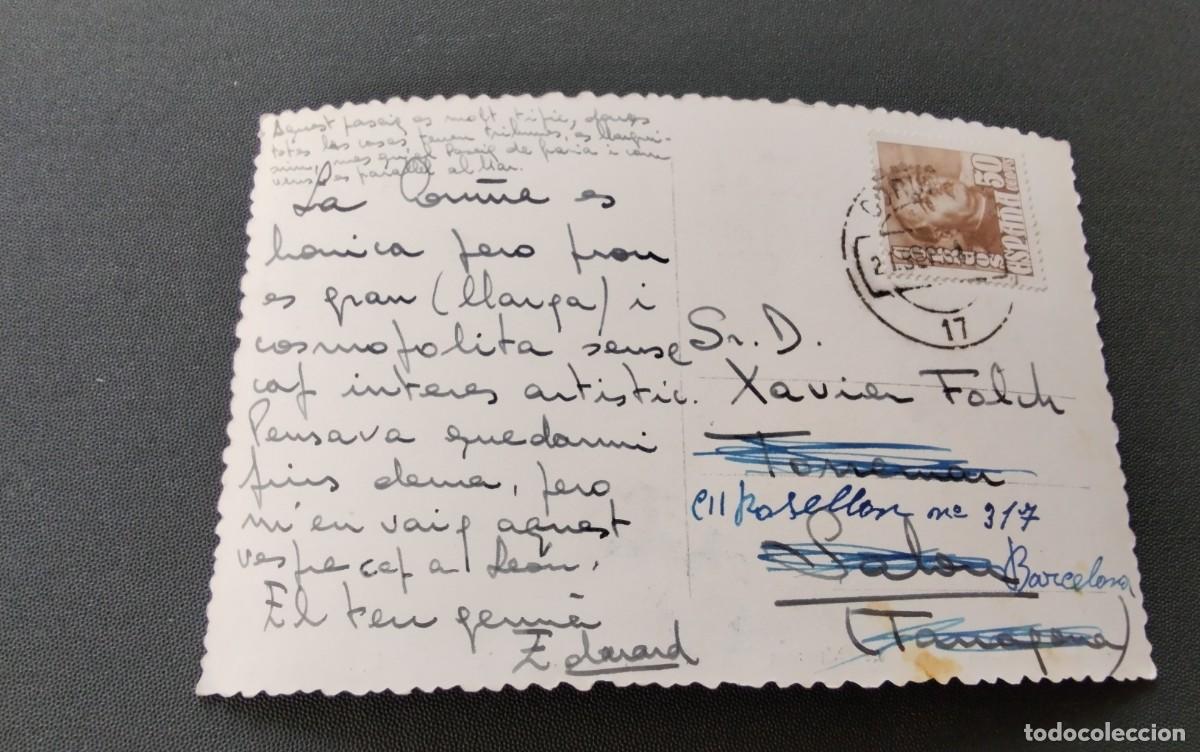 Aquest passeig es molt tipic, doncs
totes las casas tenen tribunes, es llargui-
sim, mes qu'el Paseig de Gracia i com
veus es paral·lel al Mar.
La Coruña es
bonica pero prou
es gran (llarga) i
cosmopolita sense
cap interes artistic.
Pensava quedarmi
fins dema, pero
m'en vaig aquest
vespre cap a León.
El teu germà
Eduard
Sr. D.
Xavier Folch
Torremar
Rosellon nº 317
Salou
Barcelona
(Tarragona)
50
CORREOS
ESPAÑA
17
todocoleccion